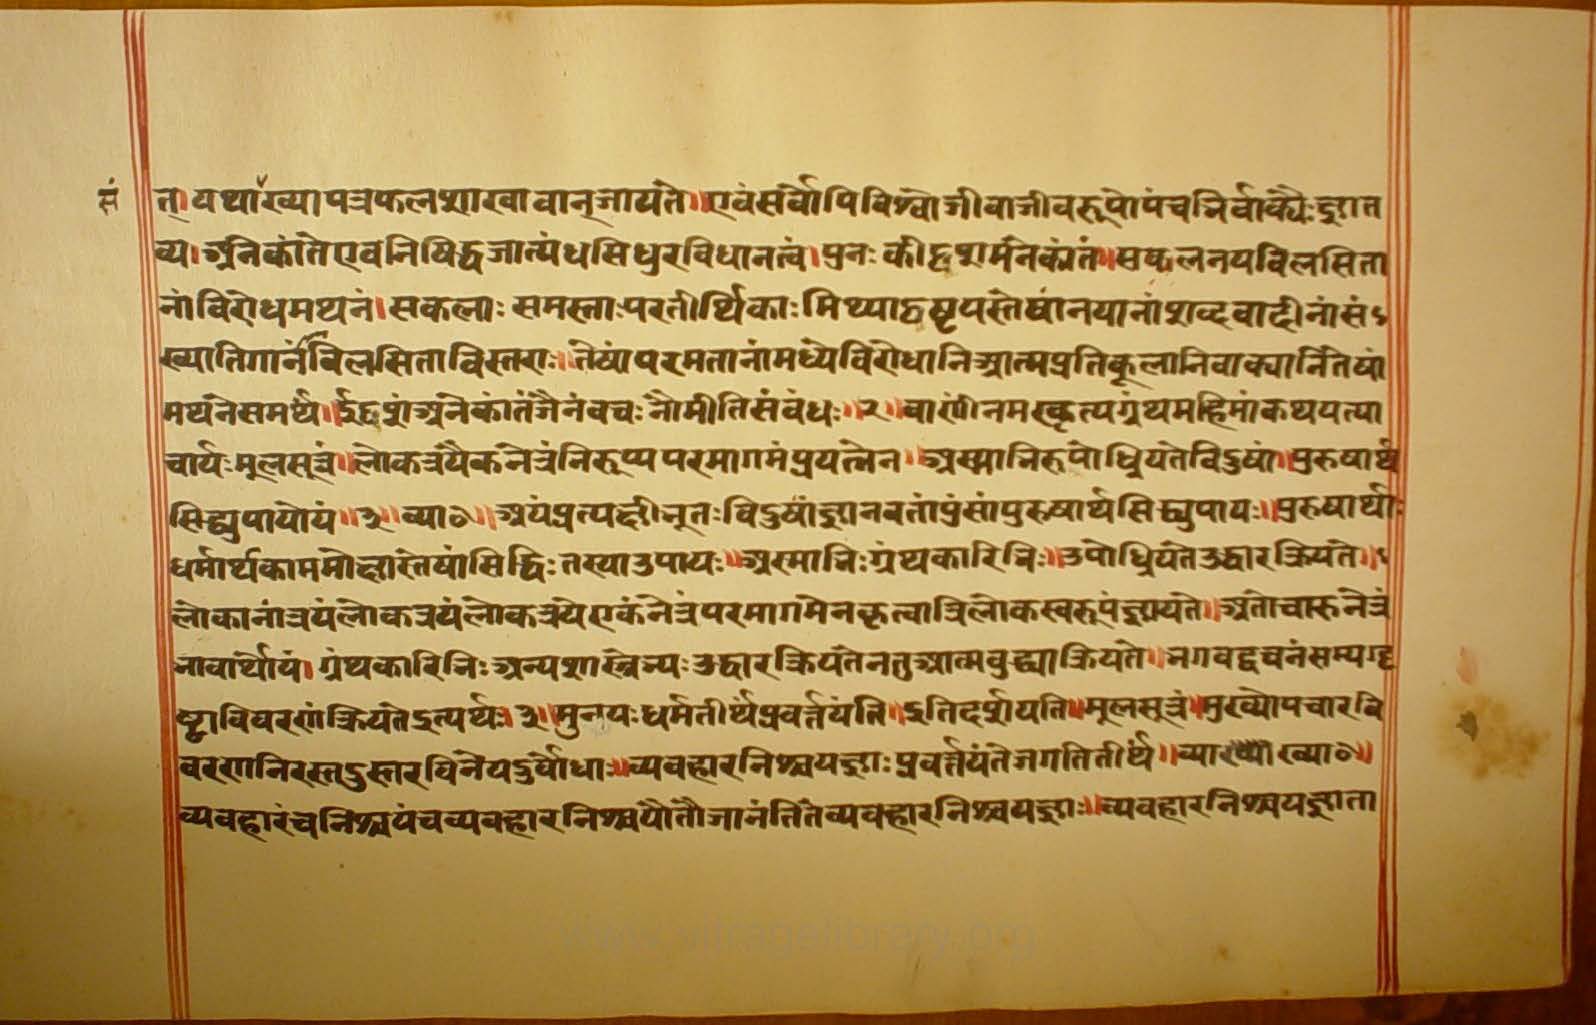 सं
त् यथा ख्या पत्रफलशाखावान् जायते॥ एवं सर्वोपि विश्वो जीवाजीवरूपो पंचनिर्वाक्यैः ज्ञात
व्य। अनेकांते एव निषिद्धजात्यंधसिंधुरविधानत्वं। पुनः कीदृशमनेकांतं॥ सकलनयविलसिता
नां विरोधमथनं। सकलाः समस्ताः परतीर्थिकाः मिथ्यादृष्टयस्तेषां नयानां शब्दवादीनां सं
ख्यातिगानां विलसिता विस्तराः॥ तेषां परमतानां मध्ये विरोधानि आत्मप्रतिकूलानि वाक्यानि तेषां
मथने समर्थं॥ ईदृशं अनेकांतं जैनं वचः नौमीति संबंधः॥ २॥ वाणीं नमस्कृत्य ग्रंथमहिमां कथयत्या
चार्यः मूलसूत्रं॥ लोकत्रयैकनेत्रं निरूप्य परमागमं प्रयत्नेन॥ अस्माभिरुपोध्रियते विदुषां॥ पुरुषार्थ
सिद्ध्युपायोयं॥ ३॥ व्या०॥ अयं प्रत्यक्षीभूतः विदुषां ज्ञानवतां पुंसां पुरुषार्थसिद्ध्युपायः॥ पुरुषार्थाः
धर्मार्थकाममोक्षास्तेषां सिद्धिः तस्या उपायः॥ अस्माभिः ग्रंथकारिभिः॥ उपोध्रियते उद्धार क्रियते॥
लोकानां त्रयं लोकत्रयं लोकत्रये एकं नेत्रं परमागमेन कृत्वा त्रिलोकस्वरूपं ज्ञायते॥ अतो चारुनेत्रं
भावार्थोयं। ग्रंथकारिभिः अन्यशास्त्रेभ्यः उद्धार क्रियते न तु आत्मबुद्ध्या क्रियते॥ भगवद्वचनं सम्यग्दृ
ष्टा विवरणं क्रियते इत्यर्थः॥ ३॥ मुनयः धर्मतीर्थं प्रवर्त्तयंति॥ इति दर्शयति॥ मूलसूत्रं॥ मुख्योपचारवि
वरणनिरस्तदुस्तरविनेयदुर्बोधाः॥ व्यवहारनिश्चयज्ञाः प्रवर्त्तयंते जगति तीर्थं॥ व्याख्या०॥
व्यवहारं च निश्चयं च व्यवहारनिश्चयौ तौ जानंति ते व्यवहारनिश्चयज्ञाः॥ व्यवहारनिश्चयज्ञाता